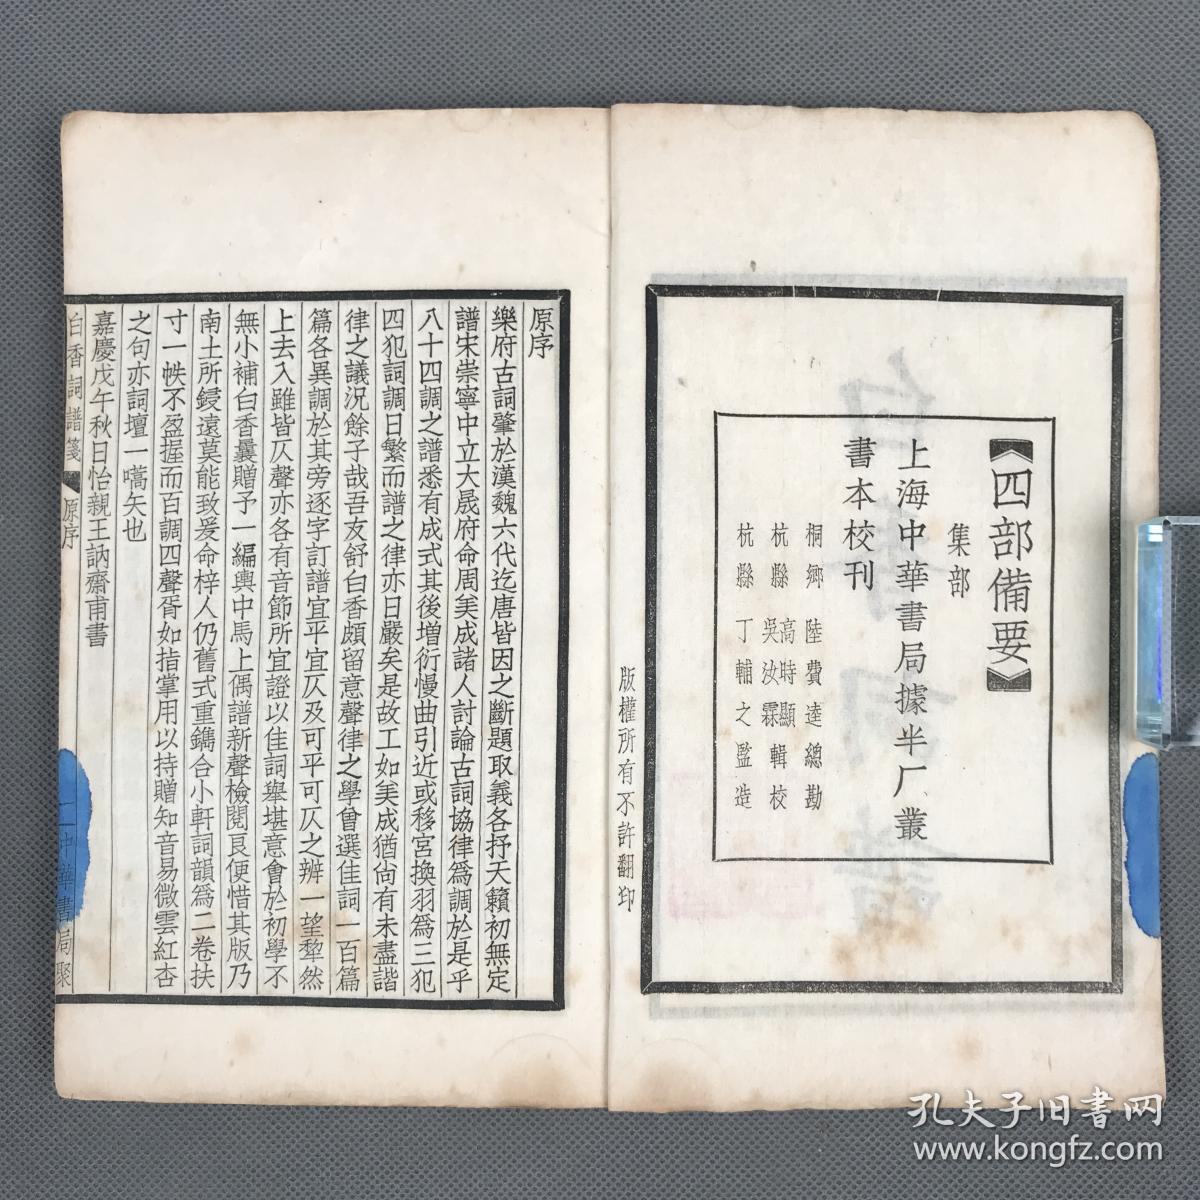 【四部備要】
集部
上海中華書局據半厂叢
書本校刊
桐鄉 陸費逵總勘
杭縣 高時顯 吳汝霖 輯校
杭縣 丁輔之監造
版權所有不許翻印
原序
樂府古詞肇於漢魏六代迄唐皆因之斷題取義各抒天籟初無定
譜宋崇寧中立大晟府命周美成諸人討論古詞協律爲調於是乎
八十四調之譜悉有成式其後增衍慢曲引近或移宮換羽爲三犯
四犯詞調日繁而譜之律亦日嚴矣是故工如美成猶尚有未盡諧
律之議況餘子哉吾友舒白香頗留意聲律之學曾選佳詞一百篇
篇各異調於其旁逐字訂譜宜平宜仄及可平可仄之辨一望犂然
上去入雖皆仄聲亦各有音節所宜證以佳詞舉堪意會於初學不
無小補白香曩贈予一編輿中馬上偶譜新聲檢閱良便惜其版乃
南土所鋟遠莫能致爰命梓人仍舊式重鐫合小軒詞韻爲二卷扶
寸一帙不盈握而百調四聲胥如指掌用以持贈知音易微雲紅杏
之句亦詞壇一嚆矢也
嘉慶戊午秋日怡親王訥齋甫書
白香詞譜箋 原序
一 中華書局聚
白香詞譜
孔夫子旧书网
www.kongfz.com